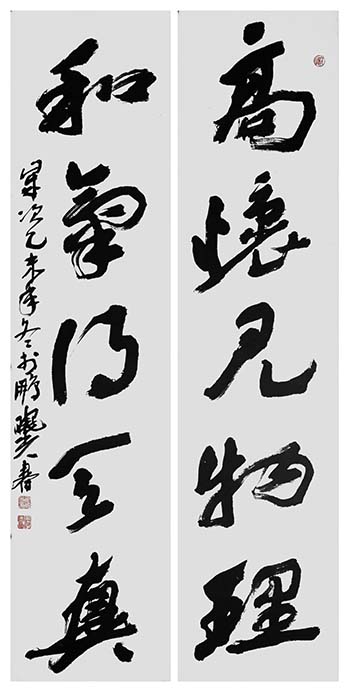 高懷見物理
和氣得天真
歲次乙未年冬於鵬城